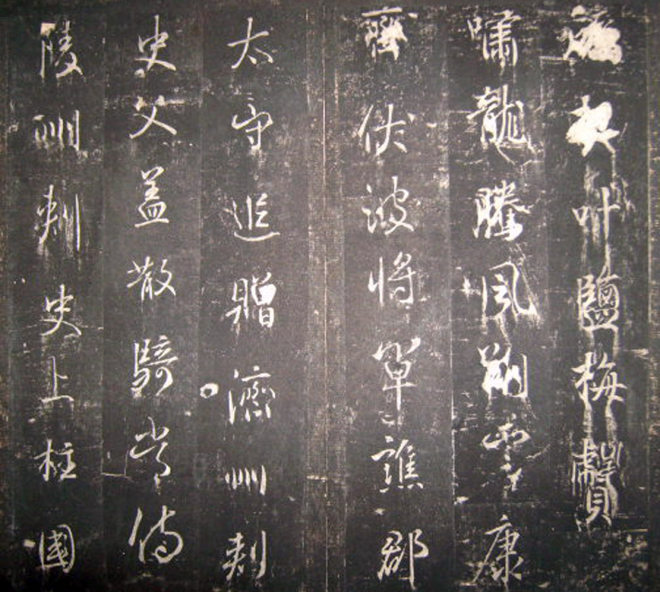 契叶鹽梅
嘯龍騰風翔雲康
齊伏波將軍譙郡
太守追贈濟州刺
史父蓋散騎常侍
陵州刺史上柱國